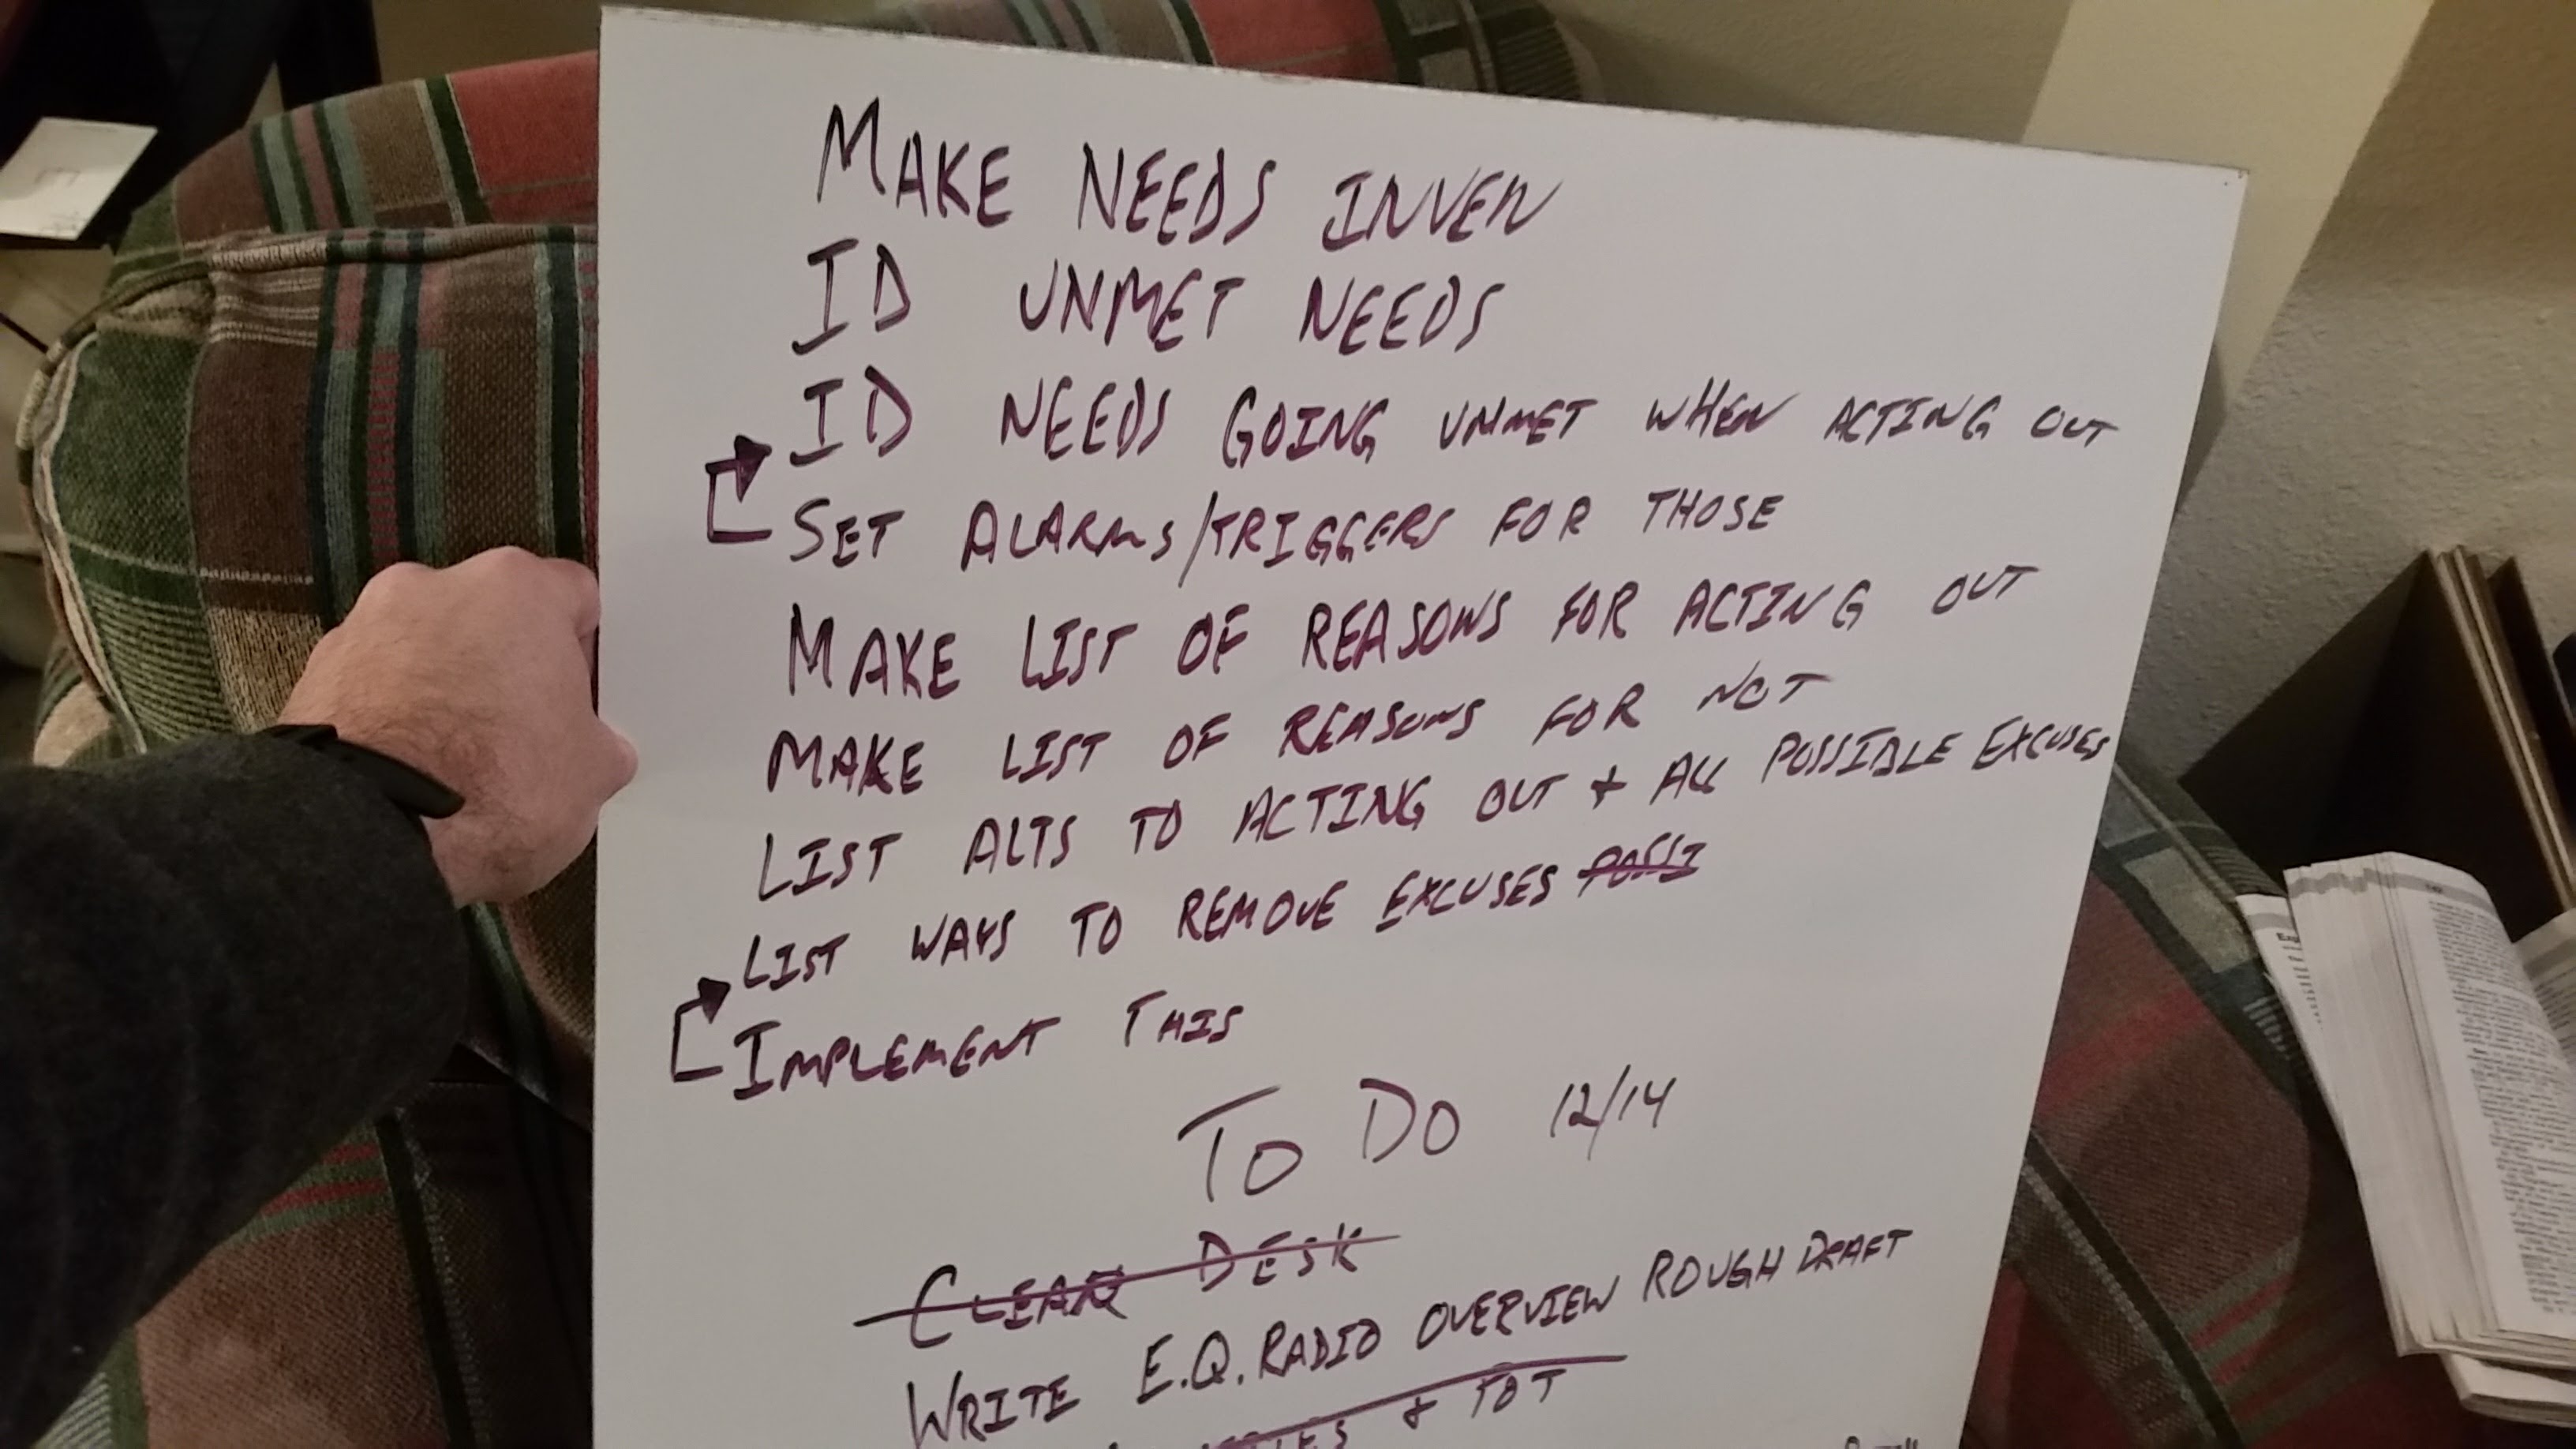 MAKE NEEDS INVEN
ID UNMET NEEDS
ID NEEDS GOING UNMET WHEN ACTING OUT
SET ALARMS/TRIGGERS FOR THOSE
MAKE LIST OF REASONS FOR ACTING OUT
MAKE LIST OF REASONS FOR NOT
LIST ALTS TO ACTING OUT + ALL POSSIBLE EXCUSES
LIST WAYS TO REMOVE EXCUSES POSSI
IMPLEMENT THIS
TO DO 12/14
CLEAN DESK
WRITE E.Q. RADIO OVERVIEW ROUGH DRAFT
& TOT